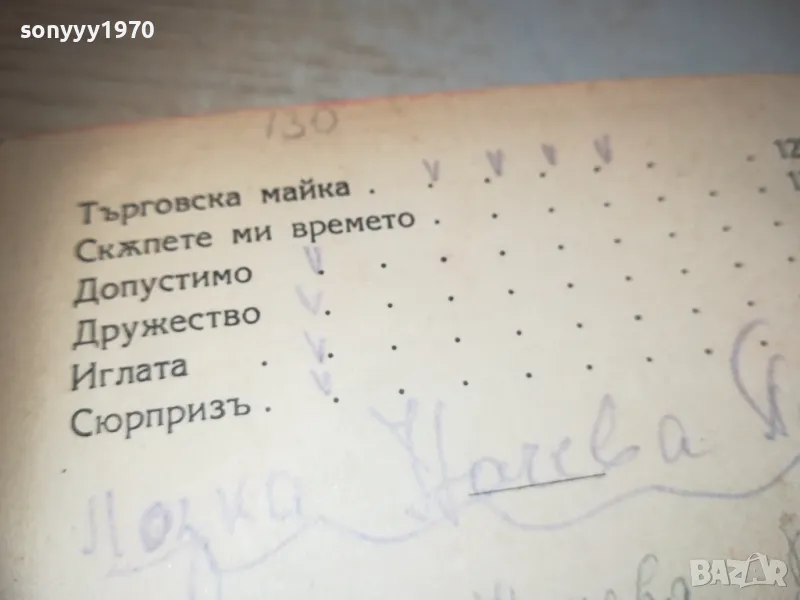 sonyyy1970
130
Търговска майка . . . . . . . 12
Скѫпете ми времето . . . . . . 1
Допустимо . . . . . . . .
Дружество . . . . . . . .
Иглата . . . . . . . . .
Сюрпризъ . . . . . . . .
Начева
BAZAR
bg